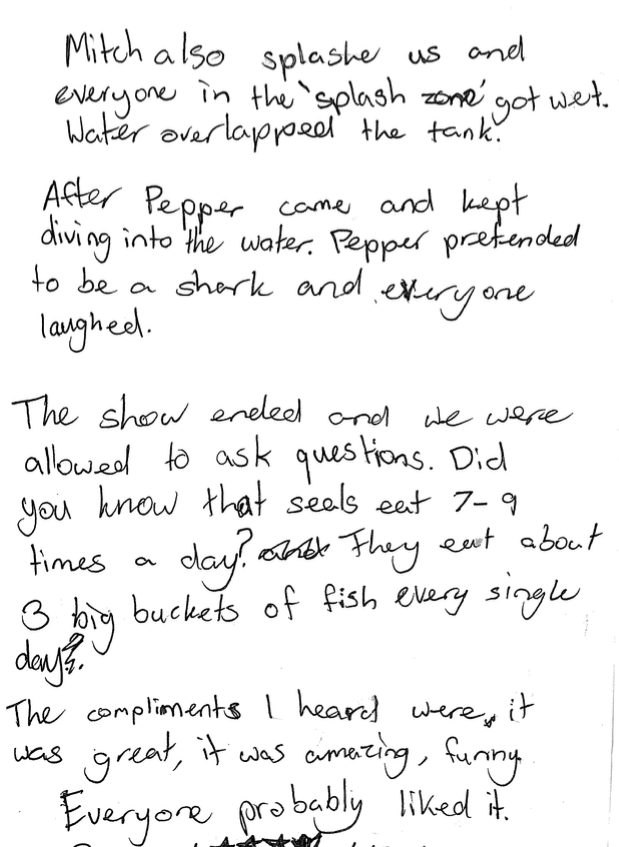 Mitch also splashe us and
everyone in the 'splash zone' got wet.
Water overlapped the tank.
After Pepper came and kept
diving into the water. Pepper pretended
to be a shark and everyone
laughed.
The show ended and we were
allowed to ask questions. Did
you know that seals eat 7-9
times a day? They eat about
3 big buckets of fish every single
day.
The compliments I heard were, it
was great, it was amazing, funny
Everyone probably liked it.